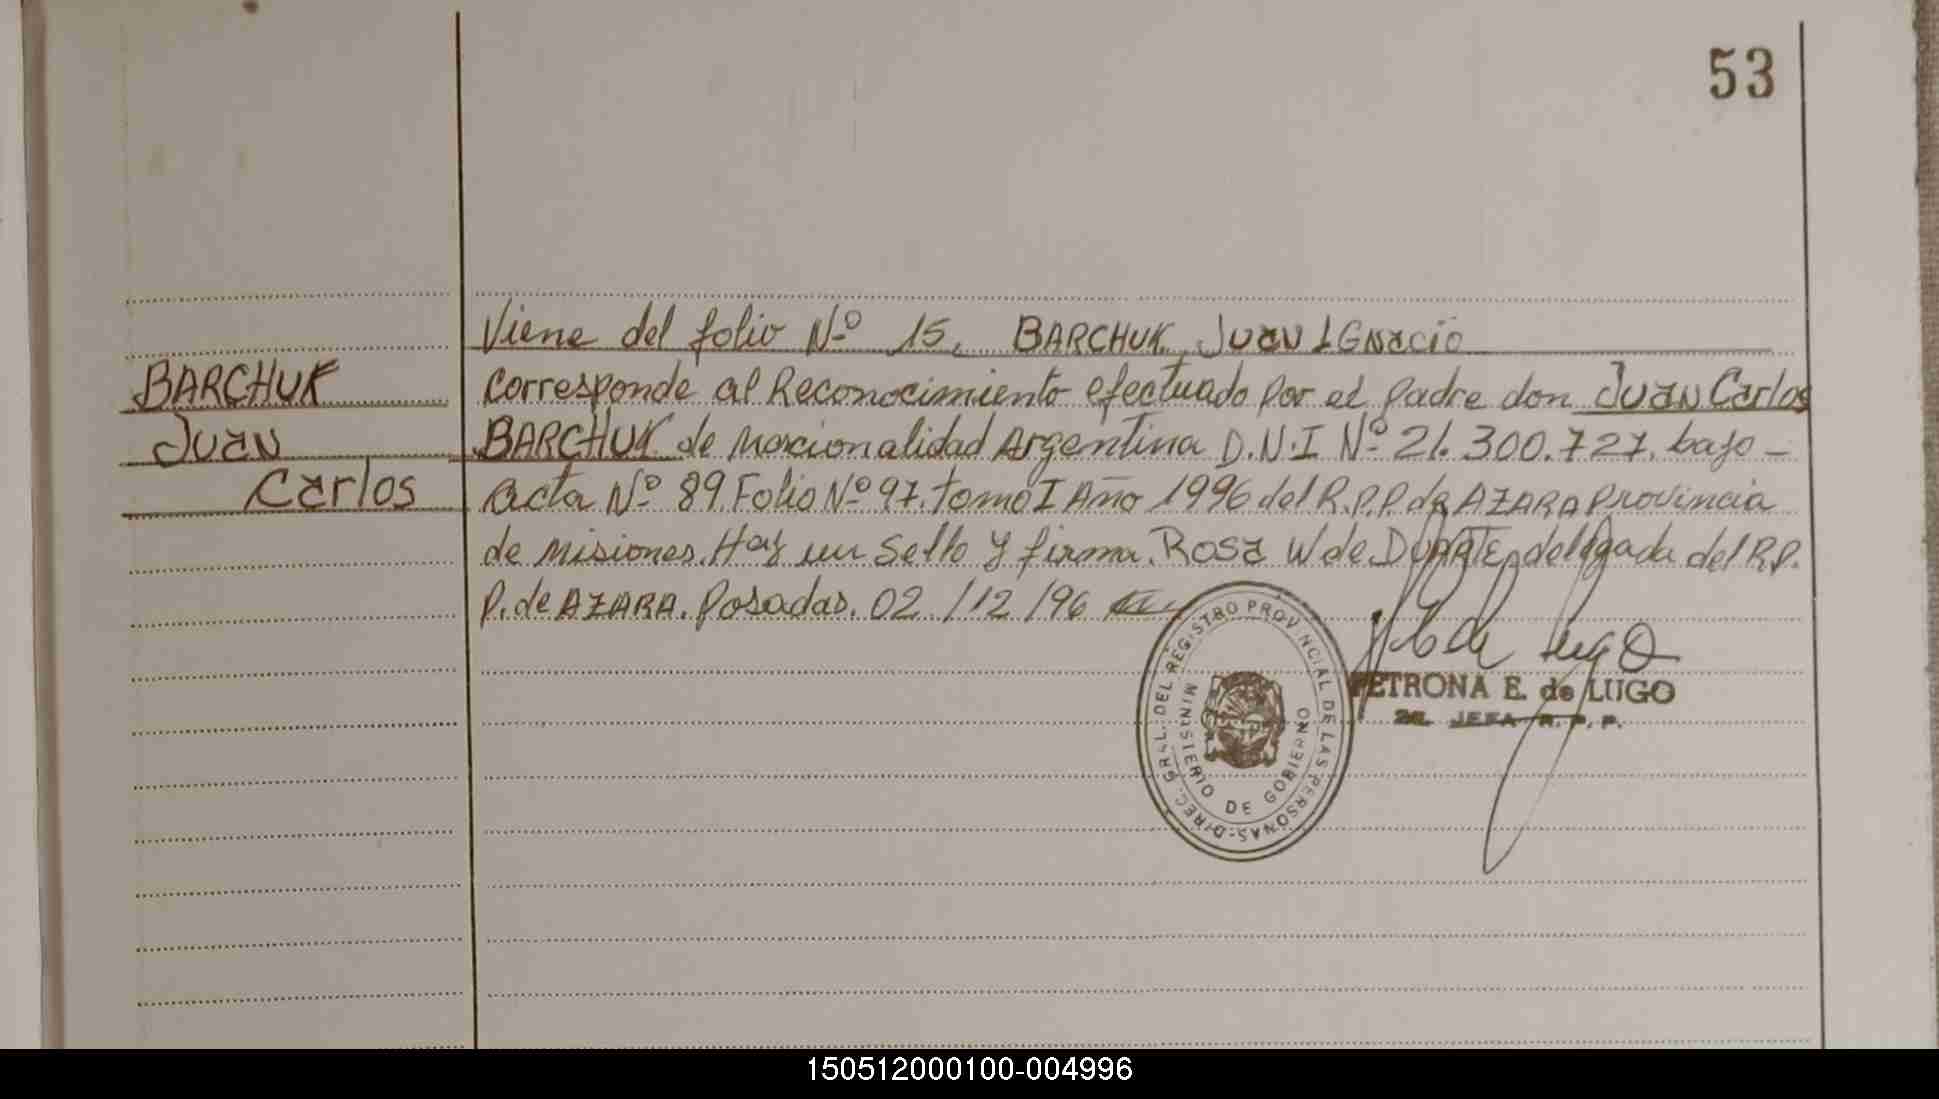 53
Viene del folio Nº 15. BARCHUK, JUAN IGNACIO
BARCHUK
Juan
Carlos
Corresponde al Reconocimiento efectuado por el padre don Juan Carlos
BARCHUK de Nacionalidad Argentina D.N.I Nº 21.300.727. bajo -
acta Nº 89. Folio Nº 97. tomo I Año 1996 del R.P.P. de AZARA Provincia
de Misiones. Hay un Sello y firma. Rosa W de DUARTE, delegada del R.P.
P. de AZARA. Posadas. 02/12/96
DIREC. GRAL. DEL REGISTRO PROVINCIAL DE LAS PERSONAS-
MINISTERIO DE GOBIERNO
PETRONA E. de LUGO
JEFA R. P. P.
150512000100-004996